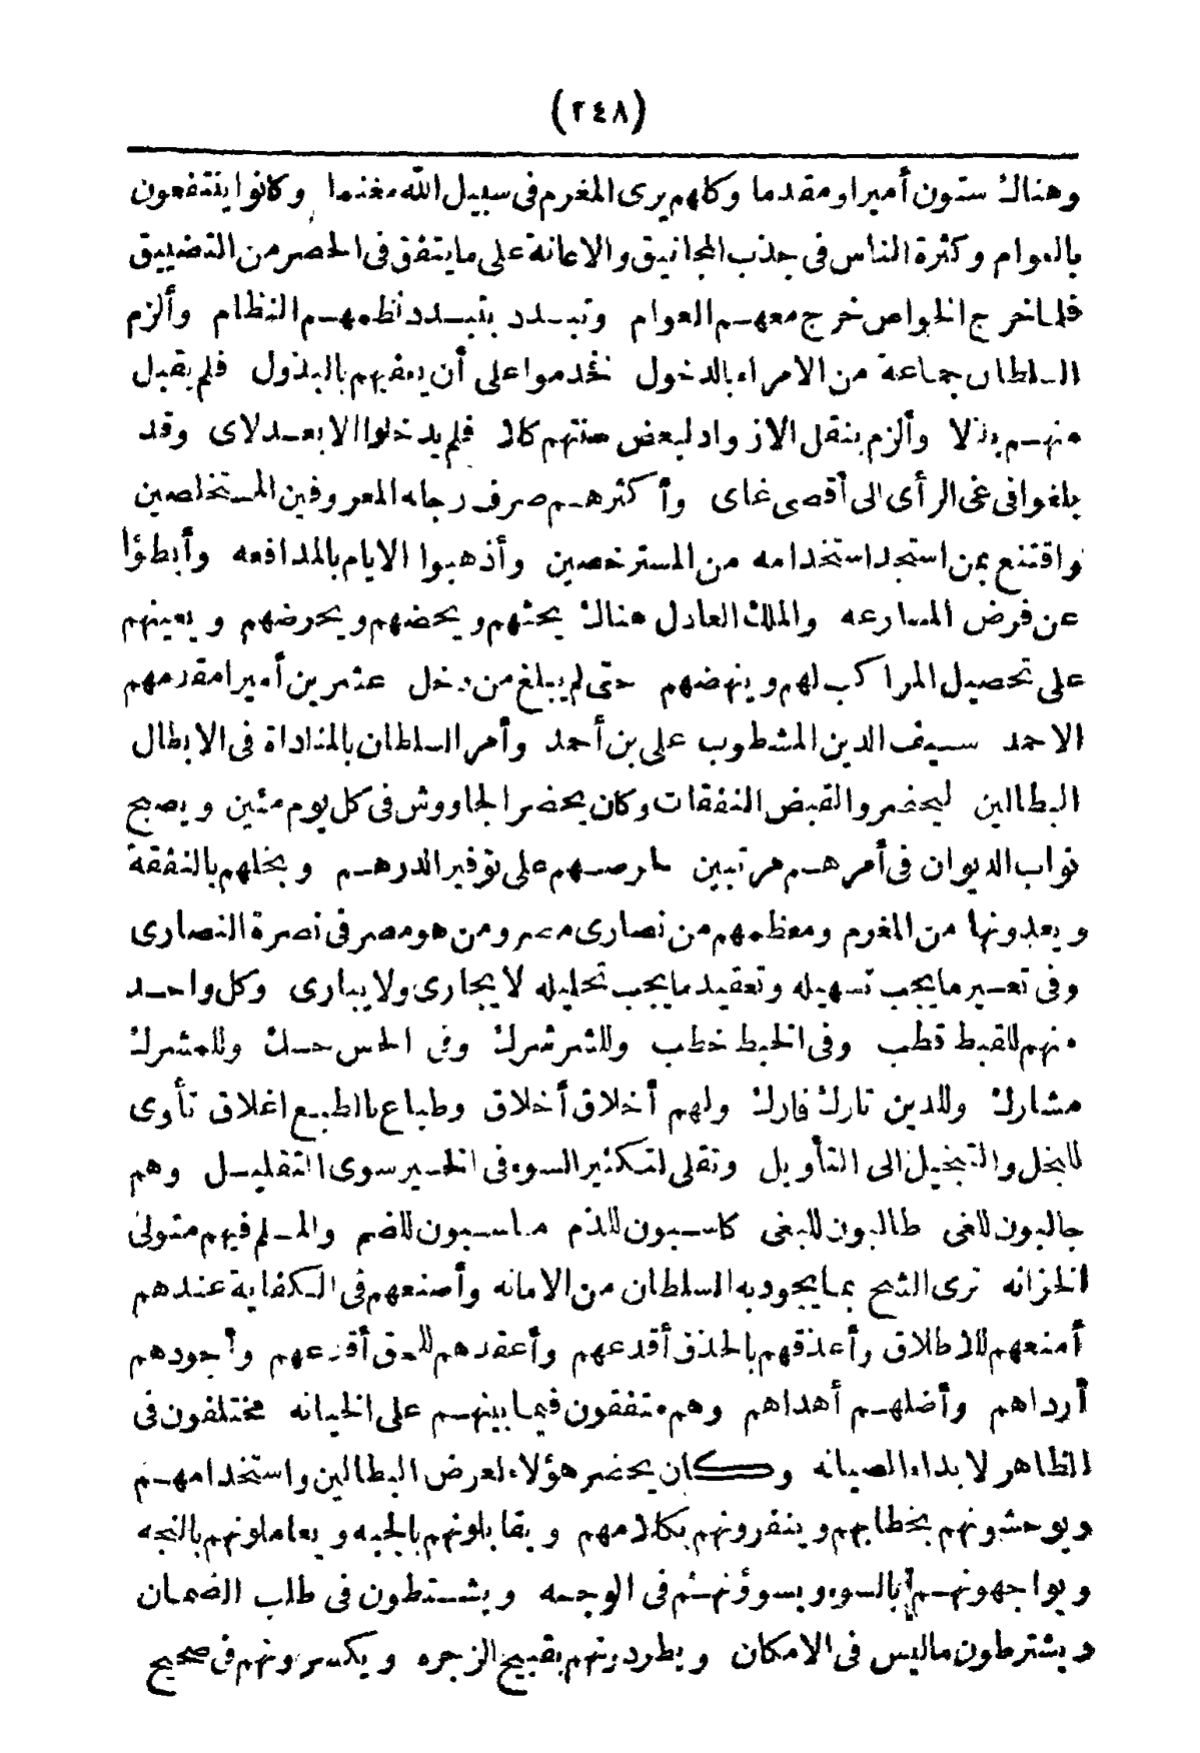 (٢٤٨)
وهناك ستون أميرا ومقدما وكلهم يرى المغرم فى سبيل الله مغنما وكانوا ينتفعون
بالعوام وكثرة الناس فى جذب المجانيق والاعانة على ما يتفق فى الحصر من التضييق
فلما خرج الخواص خرج معهم العوام وتبدد بتبدد نظمهم النظام وألزم
السلطان جماعة من الامراء بالدخول فخدموا على أن يعفيهم بالبذول فلم يقبل
منهم بذلا وألزم بنقل الازواد لبعض منتهم كلا فلم يدخلوا الا بعد لاى وقد
بلغوا فى غى الرأى الى أقصى غاى وأكثرهم صرف رجاله المعروفين المستخلصين
واقتنع بمن استجد استخدامه من المسترخصين وأذهبوا الايام بالمدافعه وأبطؤا
عن فرض المسارعه والملك العادل هناك يحثهم ويحضهم ويحرضهم ويعينهم
على تحصيل المراكب لهم وينهضهم حتى لم يبلغ من دخل عشرين أميرا مقدمهم
الاحمد سيف الدين المشطوب على بن أحمد وأمر السلطان بالمناداة فى الابطال
البطالين ليحضروا لقبض النفقات وكان يحضر الجاووش فى كل يوم مئين ويصبح
نواب الديوان فى أمرهم مرتبين لحرصهم على توفير الدرهم وبخلهم بالنفقة
ويعدونها من المغرم ومعظمهم من نصارى مصر ومن هو مصر فى نصرة النصارى
وفى تعسير ما يجب تسهيله وتعقيد ما يجب تحليله لا يجارى ولا يبارى وكل واحد
منهم للقبط قطب وفى الخبط خطب وللشر شرك وفى الحس حسك وللمشرك
مشارك وللدين تارك فارك ولهم أخلاق أخلاق وطباع بالطبع اغلاق تأوى
للبخل والتبخيل الى التأويل وتقلى لتكثير السوء فى الخير سوى التقليل وهم
جالبون للغى طالبون للبغى كاسبون للذم مناسبون للضم والمسلم فيهم متولى
الخزانه ترى الشح بما يجود به السلطان من الامانه وأصنعهم فى الكفاية عندهم
أمنعهم للاطلاق وأعذقهم بالحذق أقدعهم وأعقدهم للحق أقرعهم وأجودهم
أرداهم وأضلهم أهداهم وهم متفقون فيما بينهم على الخيانه مختلفون فى
الظاهر لابداء الصيانه وكان يحضر هؤلاء لعرض البطالين واستخدامهم
ويوحشونهم بخطابهم وينفرونهم بكلامهم ويقابلونهم بالجبه ويعاملونهم بالنجه
ويواجهونهم بالسوء ويسوؤنهم فى الوجه ويشتطون فى طلب الضمان
ويشترطون ما ليس فى الامكان ويطردونهم بقبيح الزجره ويكسرونهم فى صحيح